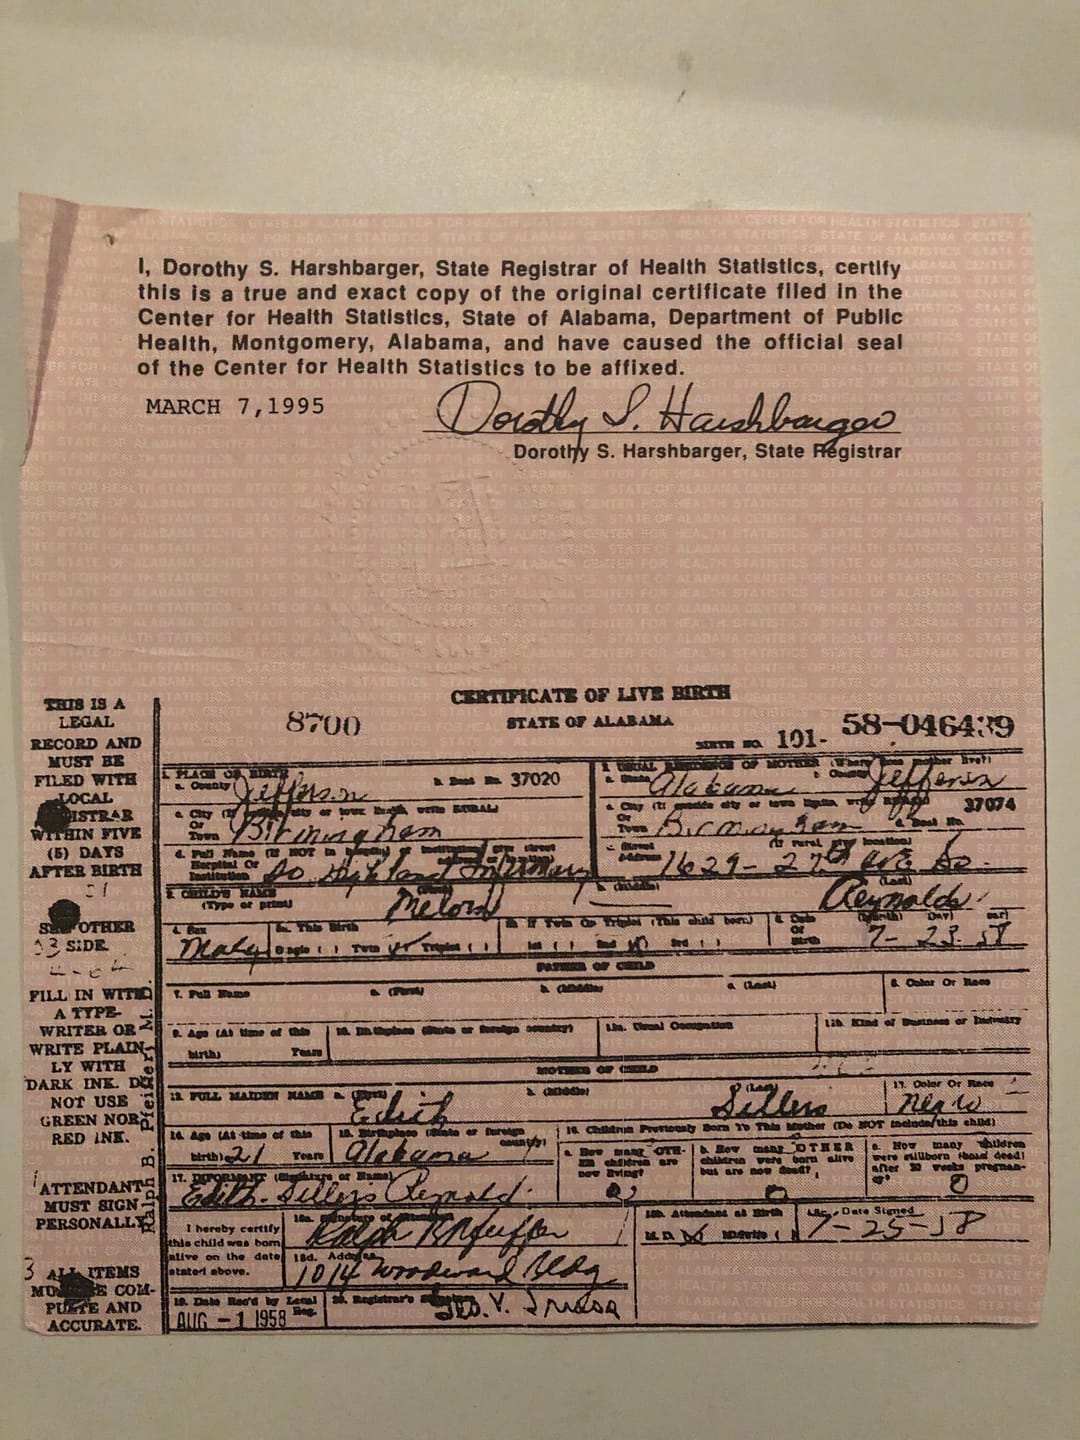 I, Dorothy S. Harshbarger, State Registrar of Health Statistics, certify
this is a true and exact copy of the original certificate filed in the
Center for Health Statistics, State of Alabama, Department of Public
Health, Montgomery, Alabama, and have caused the official seal
of the Center for Health Statistics to be affixed.
MARCH 7,1995
Dorothy S. Harshbarger
Dorothy S. Harshbarger, State Registrar
CERTIFICATE OF LIVE BIRTH
8700 STATE OF ALABAMA
BIRTH NO. 101- 58-046439
THIS IS A
LEGAL
RECORD AND
MUST BE
FILED WITH
LOCAL
WITHIN FIVE
(5) DAYS
AFTER BIRTH
OTHER
SIDE.
FILL IN WITH
A TYPE-
WRITER OR
WRITE PLAIN-
LY WITH
DARK INK. DO
NOT USE
GREEN NOR
RED INK.
ATTENDANT
MUST SIGN
PERSONALLY
ALL ITEMS
MUST BE COM-
PLETE AND
ACCURATE.
Ralph B. Pfeiffer, M.
1. PLACE OF BIRTH
a. County Jefferson b. Beat No. 37020
c. City (If outside city or town limits, write RURAL)
Or
Town Birmingham
d. Full Name (If NOT in hospital or institution, give street
Hospital Or
Institution So Highland Infirmary
2. USUAL RESIDENCE OF MOTHER (Where does mother live?)
a. State Alabama b. County Jefferson
c. City (If outside city or town limits, write RURAL) 37074
Or
Town Birmingham d. Beat No.
e. Street (If rural, give location)
Address 1629 - 27th Ave So.
3. CHILD'S NAME (First) b. (Middle) (Last)
(Type or print) Melvin Reynolds
4. Sex Male
5a. This Birth
Single ( ) Twin Triplet ( )
5b. If Twin Or Triplet (This child born)
1st ( ) 2nd 3rd ( )
6. Date (Month) (Day)
Of
Birth 7- 23- 58
FATHER OF CHILD
7. Full Name a. (First) b. (Middle) c. (Last)
8. Color Or Race
9. Age (At time of this
birth) Years
10. Birthplace (State or foreign country)
11a. Usual Occupation
11b. Kind of Business or Industry
MOTHER OF CHILD
12. FULL MAIDEN NAME a. (First) b. (Middle) (Last)
Edith Sillers
13. Color Or Race
Negro
14. Age (At time of this
birth) 21 Years
15. Birthplace (State or foreign
country)
Alabama
16. Children Previously Born To This Mother (Do NOT include this child)
a. How many OTH-
ER children are
now living?
b. How many OTHER
children were born alive
but are now dead?
0
c. How many children
were stillborn (born dead)
after 20 weeks pregnan-
cy?
0
17. INFORMANT (Signature or Name)
Edith Sillers Reynolds
I hereby certify
this child was born
alive on the date
stated above.
Ralph B Pfeiffer
18d. Address
1014 Woodward Bldg
18b. Attendant at Birth
M.D. Midwife ( )
Date Signed
7-25-58
19. Date Rec'd by Local
Reg.
AUG -1 1958
20. Registrar's Signature
Geo.